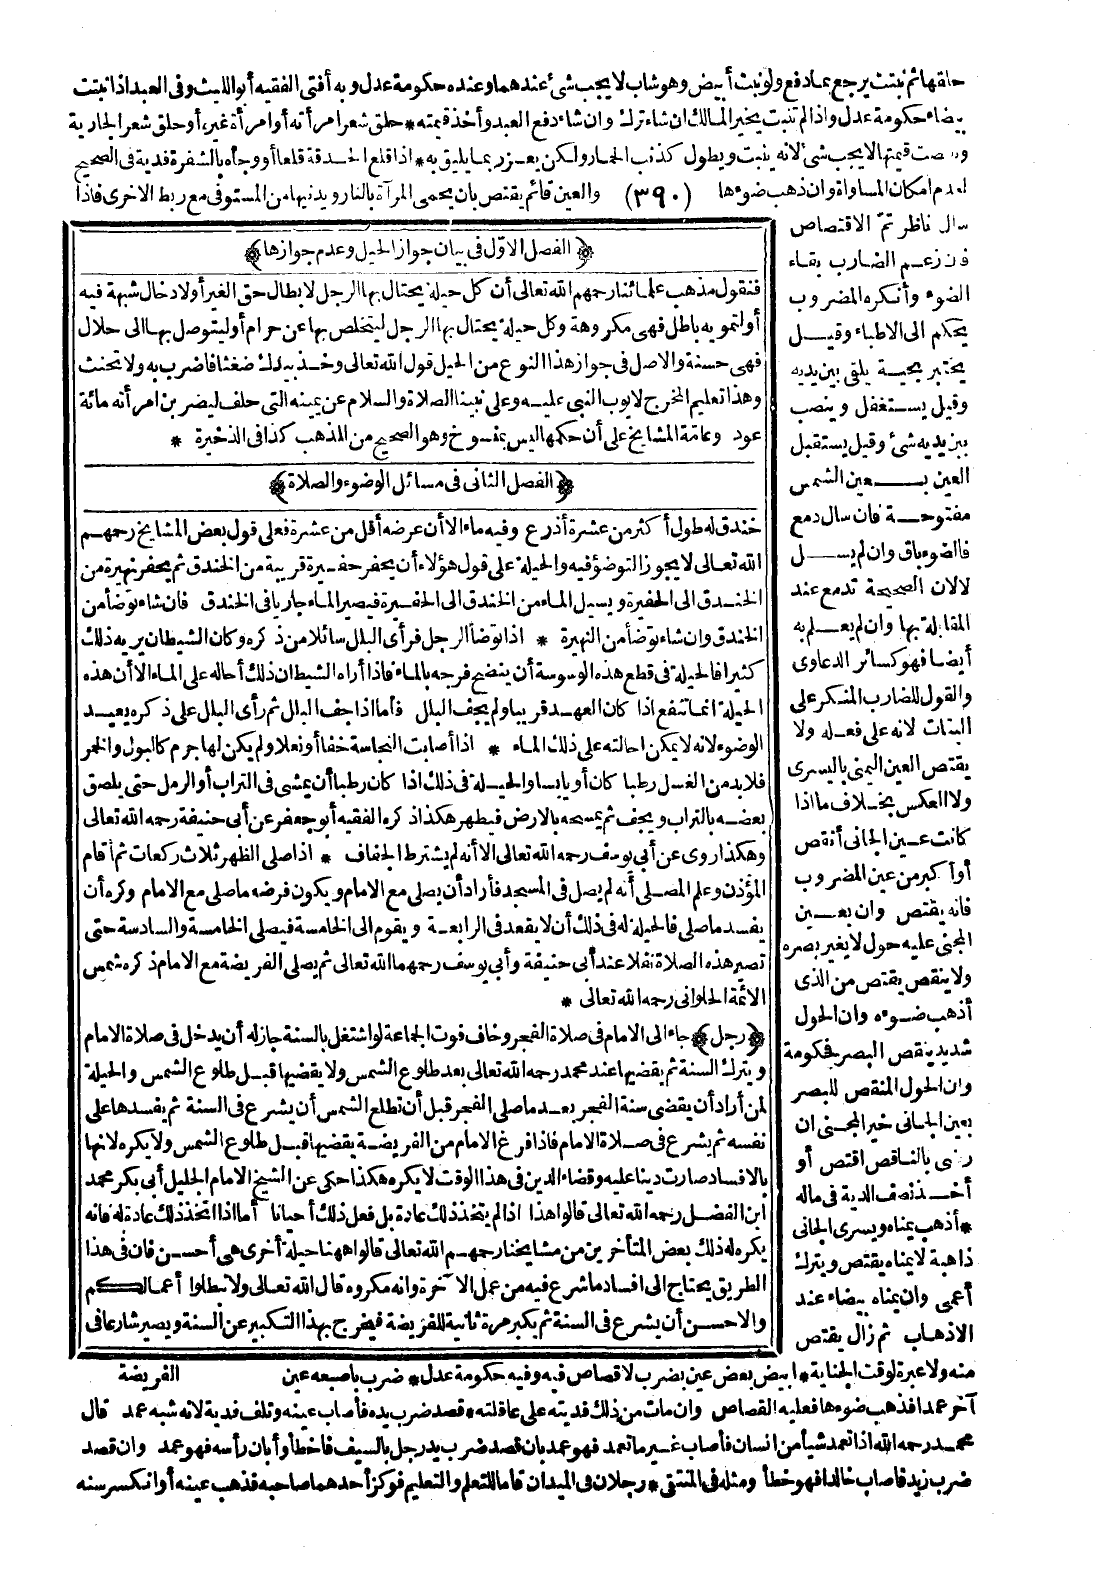 حلقها ثم نبتت يرجع بما دفع ولو نبت أبيض وهو شاب لا يجب شئ عندهما وعنده حكومة عدل وبه أفتى الفقيه أبو الليث وفى العبد اذا نبتت
بيضاء حكومة عدل واذا لم تنبت يخير المالك ان شاء ترك وان شاء دفع العبد وأخذ قيمته * حلق شعر امرأته أو امرأة غيره أو حلق شعر الجارية
ونقصت قيمتها لا يجب شئ لانه ينبت ويطول كذنب الحمار ولكن يعزر بما يليق به * اذا قلع الحدقة قلعا أو وجأه بالشفرة فدية فى الصحيح
لعدم امكان المساواة وان ذهب ضوءها (٣٩٠) والعين قائم يقتص بان يحمى المرآة بالنار ويدنيها من المستوفى مع ربط الاخرى فاذا
سال ناظر تمّ الاقتصاص
فان زعم الضارب بقاء
الضوء وأنكره المضروب
يحكم الى الاطباء وقيل
يختبر بحية يلقى بين يديه
وقيل يستغفل وينصب
بين يديه شئ وقيل يستقبل
العين بعين الشمس
مفتوحة فان سال دمع
فالضوء باق وان لم يسل
لا لان الصحيحة تدمع عند
المقابلة بها وان لم يعلم به
أيضا فهو كسائر الدعاوى
والقول للضارب المنكر على
البتات لانه على فعله ولا
يقتص العين اليمنى باليسرى
ولا العكس بخلاف ما اذا
كانت عين الجانى أنقص
أو أكبر من عين المضروب
فانه يقتص وان بعين
المجنى عليه حول لا يغير بصره
ولا ينقص يقتص من الذى
أذهب ضوءه وان الحول
شديد ينقص البصر فحكومة
وان الحول المنقص للبصر
بعين الجانى خير المجنى ان
رضى بالناقص اقتص أو
أخذ نصف الدية فى ماله
* أذهب يمناه ويسرى الجانى
ذاهبة لا يمناه يقتص ويترك
أعمى وان يمناه بيضاء عند
الاذهاب ثم زال يقتص
﴿الفصل الاوّل فى بيان جواز الحيل وعدم جوازها﴾
فنقول مذهب علمائنا رحمهم الله تعالى أن كل حيلة يحتال بها الرجل لابطال حق الغير أو لادخال شبهة فيه
أو لتمويه باطل فهى مكروهة وكل حيلة يحتال بها الرجل ليتخلص بها عن حرام أو ليتوصل بها الى حلال
فهى حسنة والاصل فى جواز هذا النوع من الحيل قول الله تعالى وخذ بيدك ضغثا فاضرب به ولا تحنث
وهذا تعليم المخرج لايوب النبى عليه وعلى نبينا الصلاة والسلام عن يمينه التى حلف ليضربن امرأته مائة
عود وعامّة المشايخ على أن حكمها ليس بمنسوخ وهو الصحيح من المذهب كذا فى الذخيرة *
﴿الفصل الثانى فى مسائل الوضوء والصلاة﴾
خندق له طول أكثر من عشرة أذرع وفيه ماء الا أن عرضه أقل من عشرة فعلى قول بعض المشايخ رحمهم
الله تعالى لا يجوز التوضؤ فيه والحيلة على قول هؤلاء أن يحفر حفيرة قريبة من الخندق ثم يحفر نهيرة من
الخندق الى الحفيرة ويسيل الماء من الخندق الى الحفيرة فيصير الماء جاريا فى الخندق فان شاء توضأ من
الخندق وان شاء توضأ من النهيرة * اذا توضأ الرجل فرأى البلل سائلا من ذكره وكان الشيطان يريه ذلك
كثيرا فالحيلة فى قطع هذه الوسوسة أن ينضح فرجه بالماء فاذا أراه الشيطان ذلك أحاله على الماء الا أن هذه
الحيلة انما تنفع اذا كان العهد قريبا ولم يجف البلل فأما اذا جف البلل ثم رأى البلل على ذكره يعيد
الوضوء لانه لا يمكن احالته على ذلك الماء * اذا أصابت النجاسة خفا أو نعلا ولم يكن لها جرم كالبول والخمر
فلا بد من الغسل رطبا كان أو يابسا والحيلة فى ذلك اذا كان رطبا أن يمشى فى التراب أو الرمل حتى يلصق
بعضه بالتراب ويجف ثم يمسحه بالارض فيطهر هكذا ذكره الفقيه أبو جعفر عن أبى حنيفة رحمه الله تعالى
وهكذا روى عن أبى يوسف رحمه الله تعالى الا أنه لم يشترط الجفاف * اذا صلى الظهر ثلاث ركعات ثم أقام
المؤذن وعلم المصلى أنه لم يصل فى المسجد فأراد أن يصلى مع الامام ويكون فرضه ما صلى مع الامام وكره أن
يفسد ما صلى فالحيلة له فى ذلك أن لا يقعد فى الرابعة ويقوم الى الخامسة فيصلى الخامسة والسادسة حتى
تصير هذه الصلاة نفلا عند أبى حنيفة وأبى يوسف رحمهما الله تعالى ثم يصلى الفريضة مع الامام ذكره شمس
الائمة الحلوانى رحمه الله تعالى *
﴿رجل﴾ جاء الى الامام فى صلاة الفجر وخاف فوت الجماعة لو اشتغل بالسنة جاز له أن يدخل فى صلاة الامام
ويترك السنة ثم يقضيها عند محمد رحمه الله تعالى بعد طلوع الشمس ولا يقضيها قبل طلوع الشمس والحيلة
لمن أراد أن يقضى سنة الفجر بعد ما صلى الفجر قبل أن تطلع الشمس أن يشرع فى السنة ثم يفسدها على
نفسه ثم يشرع فى صلاة الامام فاذا فرغ الامام من الفريضة يقضيها قبل طلوع الشمس ولا يكره لانها
بالافساد صارت دينا عليه وقضاء الدين فى هذا الوقت لا يكره هكذا حكى عن الشيخ الامام الجليل أبى بكر محمد
ابن الفضل رحمه الله تعالى قالوا هذا اذا لم يتخذ ذلك عادة بل فعل ذلك أحيانا أما اذا اتخذ ذلك عادة له فانه
يكره له ذلك بعض المتأخرين من مشايخنا رحمهم الله تعالى قالوا ههنا حيلة أخرى هى أحسن فان فى هذا
الطريق يحتاج الى افساد ما شرع فيه من عمل الآخرة وانه مكروه قال الله تعالى ولا تبطلوا أعمالكم
والاحسن أن يشرع فى السنة ثم يكبر مرة ثانية للفريضة فيخرج بهذا التكبير عن السنة ويصير شارعا فى
الفريضة
منه ولا عبرة لوقت الجناية * ابيض بعض عين بضرب لا قصاص فيه وفيه حكومة عدل * ضرب باصبعه عين
آخر عمدا فذهب ضوءها فعليه القصاص وان مات من ذلك فديته على عاقلته * قصد ضرب يده فأصاب عينه وتلف فدية لانه شبه عمد قال
محمد رحمه الله اذا تعمد شيأ من انسان فأصاب غير ما تعمد فهو عمد بان قصد ضرب يد رجل بالسيف فأخطأ وأبان رأسه فهو عمد وان قصد
ضرب زيد فأصاب خالدا فهو خطأ ومثله فى المنتقى * رجلان فى الميدان قاما للتعلم والتعليم فوكز أحدهما صاحبه فذهب عينه أو انكسر سنه